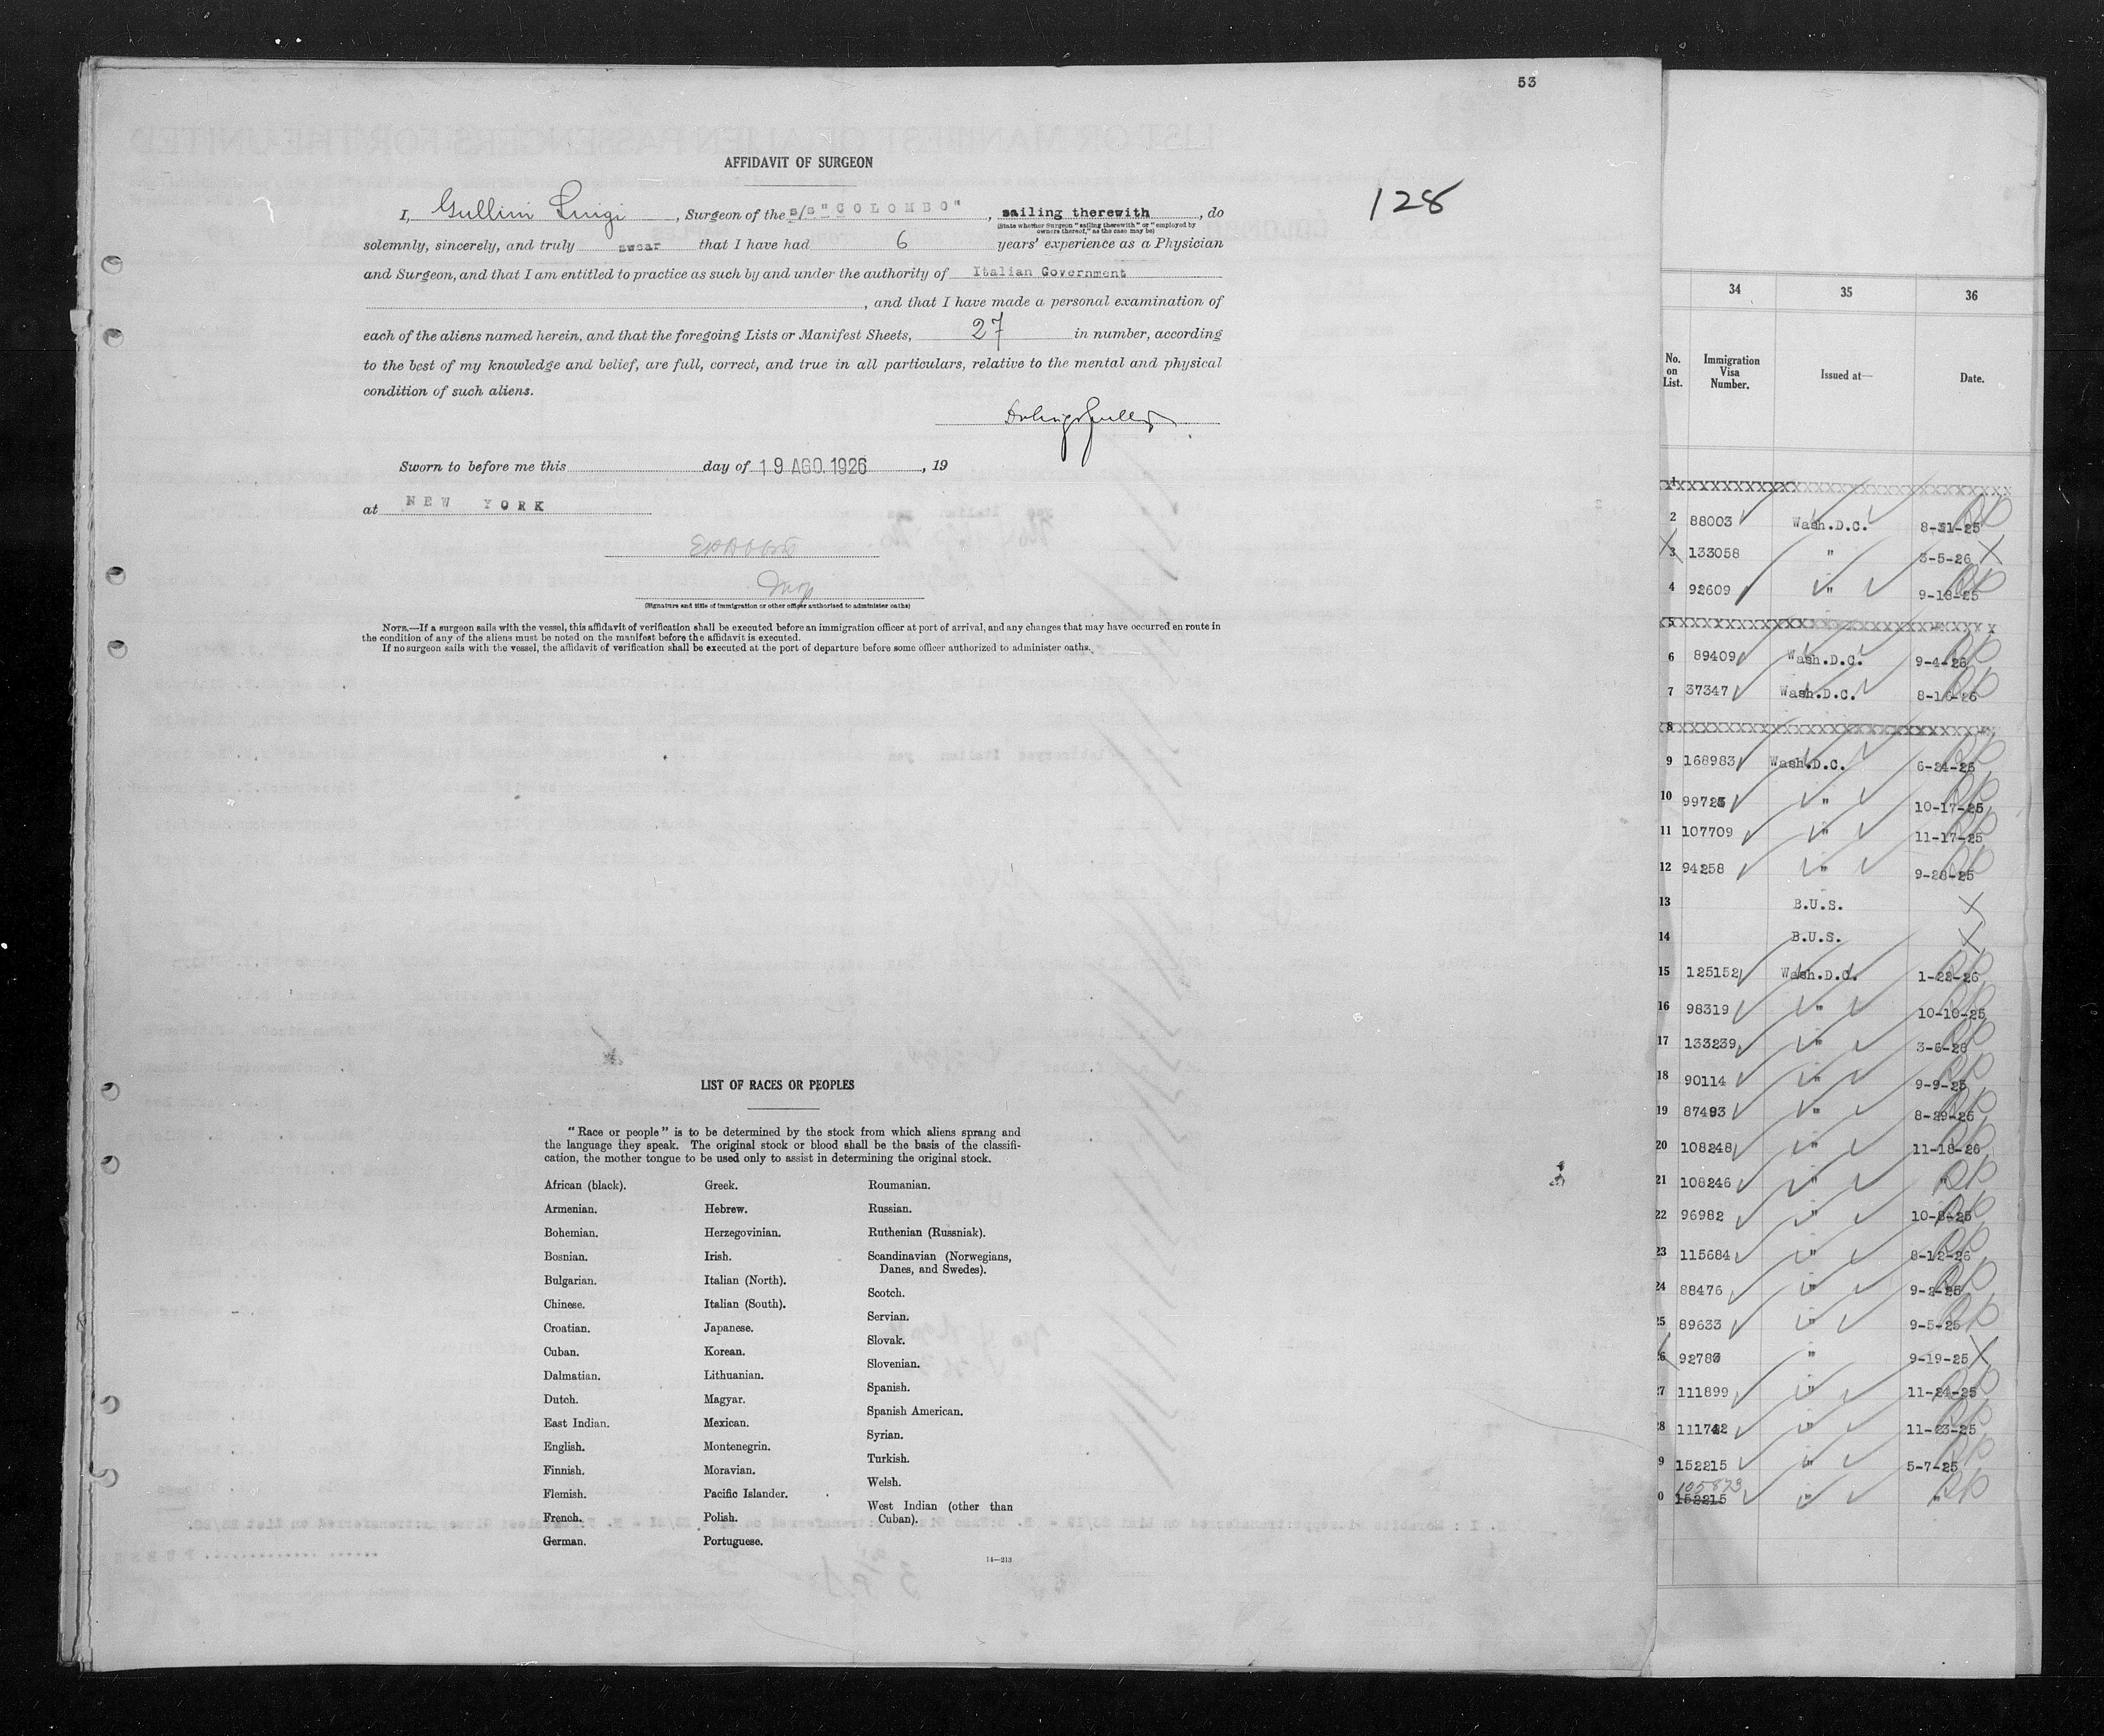 53
AFFIDAVIT OF SURGEON
128
I, Gullini Luigi, Surgeon of the s/s "COLOMBO", sailing therewith, do
(State whether Surgeon "sailing therewith" or "employed by
owners thereof," as the case may be)
solemnly, sincerely, and truly swear that I have had 6 years' experience as a Physician
and Surgeon, and that I am entitled to practice as such by and under the authority of Italian Government
, and that I have made a personal examination of
each of the aliens named herein, and that the foregoing Lists or Manifest Sheets, 27 in number, according
to the best of my knowledge and belief, are full, correct, and true in all particulars, relative to the mental and physical
condition of such aliens.
Sworn to before me this day of 19 AGO. 1926, 19
at NEW YORK
(Signature and title of immigration or other officer authorized to administer oaths)
NOTE.—If a surgeon sails with the vessel, this affidavit of verification shall be executed before an immigration officer at port of arrival, and any changes that may have occurred en route in
the condition of any of the aliens must be noted on the manifest before the affidavit is executed.
If no surgeon sails with the vessel, the affidavit of verification shall be executed at the port of departure before some officer authorized to administer oaths.
LIST OF RACES OR PEOPLES
"Race or people" is to be determined by the stock from which aliens sprang and
the language they speak. The original stock or blood shall be the basis of the classifi-
cation, the mother tongue to be used only to assist in determining the original stock.
African (black).
Armenian.
Bohemian.
Bosnian.
Bulgarian.
Chinese.
Croatian.
Cuban.
Dalmatian.
Dutch.
East Indian.
English.
Finnish.
Flemish.
French.
German.
Greek.
Hebrew.
Herzegovinian.
Irish.
Italian (North).
Italian (South).
Japanese.
Korean.
Lithuanian.
Magyar.
Mexican.
Montenegrin.
Moravian.
Pacific Islander.
Polish.
Portuguese.
Roumanian.
Russian.
Ruthenian (Russniak).
Scandinavian (Norwegians,
Danes, and Swedes).
Scotch.
Servian.
Slovak.
Slovenian.
Spanish.
Spanish American.
Syrian.
Turkish.
Welsh.
West Indian (other than
Cuban).
14—213
34 35 36
No.
on
List.
Immigration
Visa
Number.
Issued at—
Date.
1 XXXXXXXXXXXXXXXXXXXXXXXXXXXXX
2 88003 Wash.D.C. 8-31-25
3 133058 " 3-5-26
4 92609 " 9-18-25
5 XXXXXXXXXXXXXXXXXXXXXXXXXXXXX
6 89409 Wash.D.C. 9-4-26
7 37347 Wash.D.C. 8-16-26
8 XXXXXXXXXXXXXXXXXXXXXXXXXXXXX
9 168983 Wash.D.C. 6-24-25
10 99725 " 10-17-25
11 107709 " 11-17-25
12 94258 " 9-28-25
13 B.U.S.
14 B.U.S.
15 125152 Wash.D.C. 1-22-26
16 98319 " 10-10-25
17 133239 " 3-6-26
18 90114 " 9-9-25
19 87493 " 8-29-25
20 108248 " 11-18-26
21 108246 " "
22 96982 " 10-8-25
23 115684 " 8-12-26
24 88476 " 9-2-25
25 89633 " 9-5-25
26 92783 " 9-19-25
27 111899 " 11-24-25
28 111742 " 11-23-25
9 152215 " 5-7-25
105873
0 152215 " "